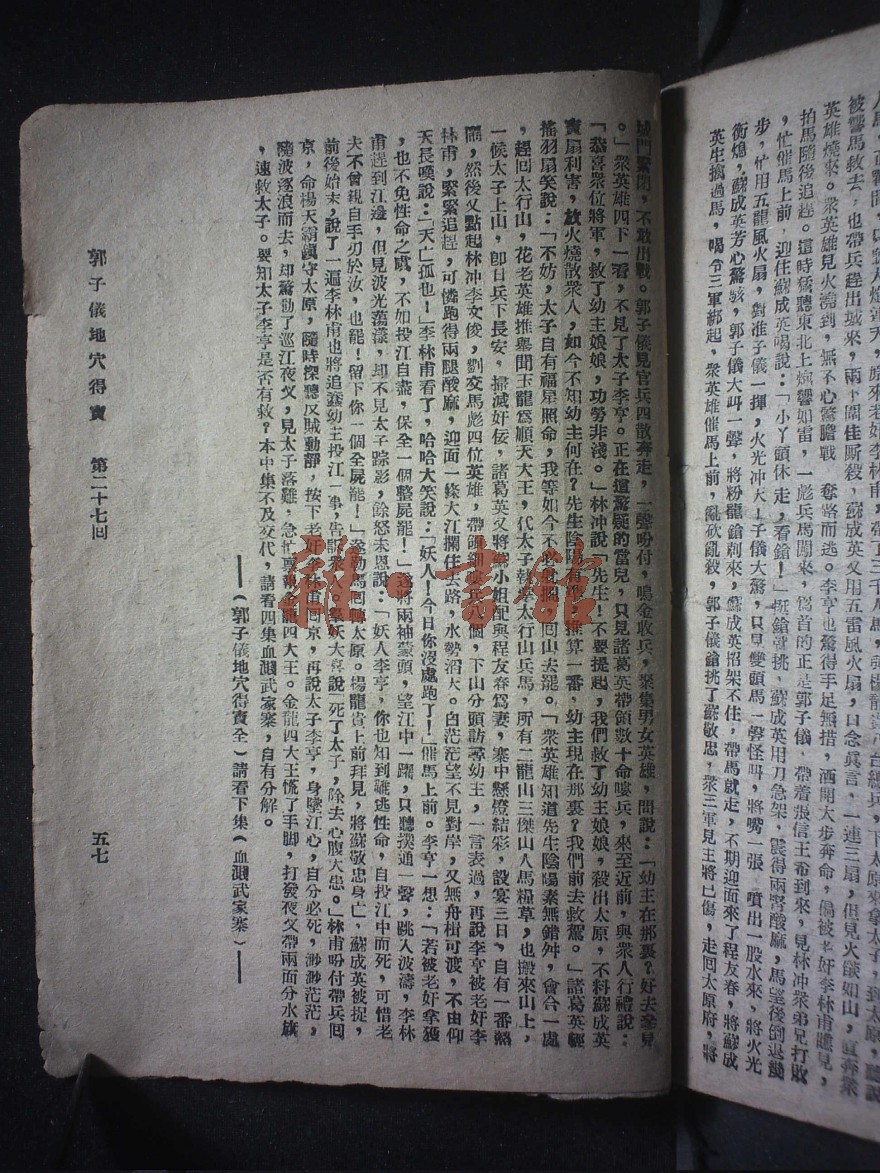 人馬,
被響馬救去,也帶兵趕出城來,兩下關住厮殺,蘇成英又用五雷風火扇,口念眞言,一連三扇,但見火燄如山,直奔衆
英雄燒來。衆英雄見火澆到,無心驚膽戰 奪路而逃。李亨也驚得手足無措,洒開大步奔命,偏被老奸李林甫瞧見,
拍馬隨後追趕。這時猛聽東北上炮響如雷,一彪兵馬闖來,爲首的正是郭子儀 帶着張信王希到來,見林冲衆弟兄打敗
,忙催馬上前 迎住蘇成英喝說:「小丫頭休走,看鎗!」挺鎗當挑,蘇成英用刀急架,震得兩膀酸麻,馬望後倒退幾
步,忙用五龍風火扇,對准子儀一揮,火光沖天!子儀大驚,只見雙頭馬一聲怪叫,將嘴一張 噴出一股水來,將火光
衝熄,蘇成英芳心驚駭,郭子儀大叫一聲,將粉龍鎗刺來,蘇成英招架不住,帶馬就走,不期迎面來了程友春,將蘇成
英生擒過馬,喝令三軍綁起,衆英雄催馬上前,亂砍亂殺,郭子儀鎗挑了蘇敬忠,衆三軍見主將已傷,走回太原府,將
城門緊閉,不敢出戰。郭子儀見官兵四散奔走,一聲吩付,鳴金收兵,聚集男女英雄,問說:「幼主在那裏?好去參見
。」衆英雄四下一看,不見了太子李亨。正在遑驚疑的當兒,只見諸葛英帶領數十命嘍兵,來至近前,與衆人行禮說:
「恭喜衆位將軍,救了幼主娘娘,功勞非淺。」林冲說「先生!不要提起,我們救了幼主娘娘,殺出太原,不料蘇成英
寶扇利害,放火燒散衆人,如今不知幼主何在?先生陰陽有準,推算一番,幼主現在那裏?我們前去救駕。」諸葛英輕
搖羽扇笑說:「不妨,太子自有福星照命,我等如今不必躭擱,回山去罷。「衆英雄知道先生陰陽素無錯舛,會合一處
,趕回太行山,花老英雄推舉聞玉龍爲順天大王,代太子執掌太行山兵馬,所有二龍山三傑山人馬糧草,也搬來山上,
一候太子上山,卽日兵下長安,掃滅奸佞,諸葛英又將蘇小姐配與程友春爲妻,寨中懸燈結彩,設宴三日,自有一番熱
鬧,然後又點起林冲李文俊,劉交馬彪四位英雄,帶領細嘍兵八個,下山分頭訪尋幼主,一言表過,再說李亨被老奸李
林甫,緊緊追趕,可憐跑得兩腿酸麻,迎面一條大江攔住去路,水勢滔天。白茫茫望不見對岸,又無舟楫可渡,不由仰
天長嘆說:「天亡孤也!」李林甫看了,哈哈大笑說:「妖人!今日你沒處跑了!」催馬上前。李亨一想:「若被老奸拿獲
,也不免性命之虞,不如投江自盡,保全一個整屍罷!」遂將兩袖蒙頭,望江中一躍,只聽撲通一聲,跳入波濤,李林
甫趕到江邊,但見波光蕩漾,却不見太子踪影,餘怒未息說:「妖人李亨,你也知到難逃性命,自投江中而死,可惜老
夫不曾親自手刃於汝,也罷!留下你一個全屍罷!」遂勒馬回轉太原。楊龍貴上前拜見,將蘇敬忠身亡,蘇成英被捉,
前後始末,說了一遍李林甫也將追蠢幼主投江一事,告訴衆人。衆妖大喜說「死了太子,除去心腹大患。」林甫吩付帶兵囘
京,命楊天霸鎭守太原,隨時探聽反賊動靜,按下老奸李林甫回京,再說太子李亨,身墜江心,自分必死,渺渺茫茫,
隨波逐浪而去,却驚動了巡江夜叉,見太子落難,急忙稟報金龍四大王。金龍四大王慌了手脚,打發夜叉帶兩面分水旗
,速救太子。要知太子李亨是否有救?本中集不及交代,請看四集血濺武家寨,自有分解。
——(郭子儀地穴得寶全)請看下集(血濺武家寨)——
郭子儀地穴得寶 第二十七回 五七